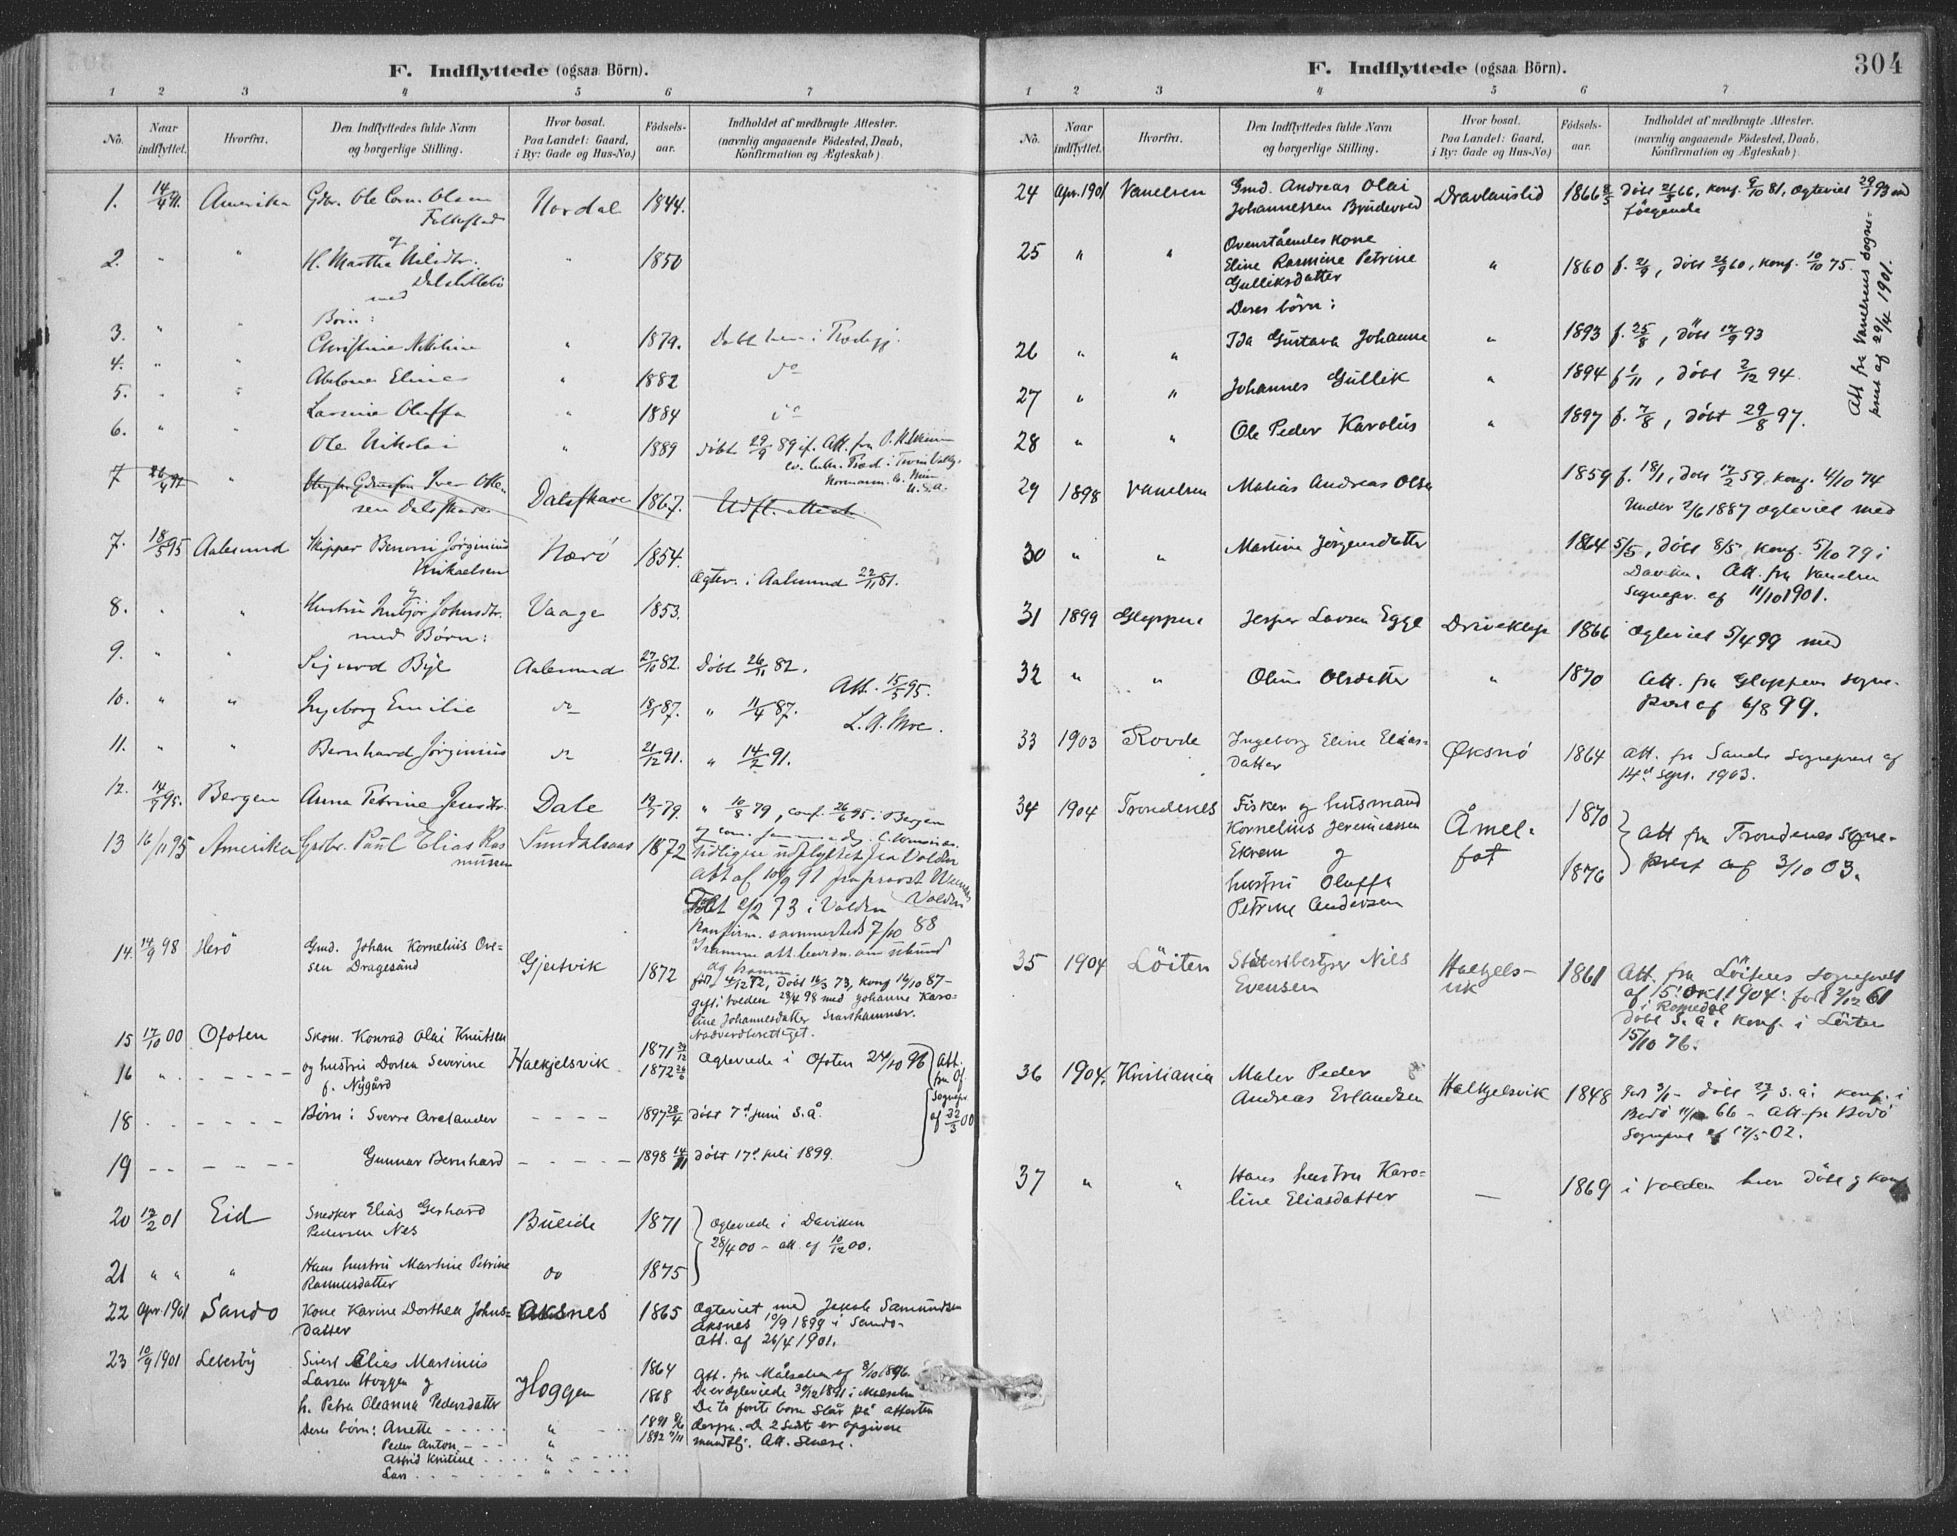 F. Indflyttede (ogsaa Börn).
1 2 3 4 5 6 7
No. Naar indflyttet. Hvorfra. Den Indflyttedes fulde Navn og borgerlige Stilling. Hvor bosat. Paa Landet: Gaard, i By: Gade og Hus-No.) Fødsels-aar. Indholdet af medbragte Attester. (navnlig angaaende Födested, Daab, Konfirmation og Ægteskab)
1. 14/4 91. Amerika Gdbr. Ole Corn. Olsen Nordal 1844.
Folkestad
og
2. " " H. Martha Nilsdtr. " 1850
med
Børn:
3. " " Christine Nikoline " 1879. Døbt her i
4. " " Abelone Eline " 1882 do
5. " " Lavine Oluffa " 1884 do
6. " " Ole Nikolai " 1889 døbt 29/9 89 if. Att. fra
7 26/4 91 " Iver Otte-
sen Dalsfkare Dalsfkare 1867. Udfl. attest
7. 18/5 95 Aalesund Skipper Benoni Jørginius Nærö 1854.
Mikaelsen Ægtev. i Aalesund 22/11 81.
8. " " Hustru Inbjør Johnsdtr. Vaage 1853.
med Børn:
9. " " Sigurd Byl Aalesund 27/10 82. Døbt 26/11 82.
Att. 15/5 95.
10. " " Ingeborg Emilie do 18/1 87. " 11/4 87.
11. " " Bernhard Jørginius do 21/12 91. " 14/2 91.
12. 14/9 95. Bergen Anna Petrine Jensdtr. Dale 19/7 79. " 10/8 79, conf. 26/6 95. Bergen
13 16/11 95 Amerika Gaдbr. Paul Elias Ras Sundalsaas 1872 tidligere udflyttet fra Volden
mussen att af 10/9 91 fra provst
Døbt 2/2 73 i Volden
Konfirm. sammesteds 7/10 88
14. 14/9 98 Herö Gmd. Johan Kornelius Ove- Gjertvik 1872
sen Dragesund
født 4/12 72, døbt 16/3 73, konf 14/10 87-
gift i Volden 28/4 98 med Johanne Karo-
line Johannesdatter Svarthammer.
Nadverdberettiget.
15 17/10 00 Ofoten Skom. Konrad Olai Knutsen 1871 24/12
16 " og hustru Dortea Severine Halkjelsvik 1872 26/6 Ægteviede i Ofoten 24/10 96 Att.
f. Nygård fra Of
Sognepr
18 Børn: Sverre Arelander 1897 28/4 døbt 7d juni S.å. af 22/3 00
19 Gunnar Bernhard 1898 14/11 døbt 17d juli 1899.
20 12/2 01 Eid Snedker Elias Gerhard Bueide 1871 Ægteviede i Daviken
Pedersen Nes 28/4 00 - att. af 10/12 00.
21 " " " Hans hustru Martine Petrine do 1875
Rasmusdatter
22 Apr. 1901 Sando Kone Karine Dorthea Johns- Aksnes 1865 Ægteviet med Jakob Samundsen
datter Aksnes 10/9 1899 i Sando-
Att. af 26/4 1901.
23 10/9 1901 Lebesby Sivert Elias Martinius 1864 Att. fra Målselven af 8/10 1896.
Larsen Hoggen og Hoggen De er ægteviede 30/12 1891 i Målselv.
h. Petra Oleanna Pedersdatter 1868 De to første born står på attesten
Deres børn: Anette " 1891 9/6 derfra. De 2 sidst er opgivne
Peder Anton " 1892 7/11 mundtlj. Att. senere.
Astrid Kristine "
Lars "
F. Indflyttede (ogsaa Börn).
304
1 2 3 4 5 6 7
No. Naar indflyttet. Hvorfra. Den Indflyttedes fulde Navn og borgerlige Stilling. Hvor bosat. Paa Landet: Gaard, i By: Gade og Hus-No.) Fødsels-aar. Indholdet af medbragte Attester. (navnlig angaaende Födested, Daab, Konfirmation og Ægteskab)
24 Apr. 1901 Vanelven Gmd. Andreas Olai Dravlauslid 1866 8/5 døbt 21/5 66, konf. 9/10 81, ægteviet 29/1 93 med
Johannessen Brudevold følgende
25 " " Ovenståendes kone
Eline Rasmine Petrine " 1860 f. 21/9, døbt 26/9 60, konf. 10/10 75.
Gulliksdatter
Deres börn:
26 " " Ida Gustava Johanne " 1893 f. 25/8, døbt 17/9 93
27 " " Johannes Gullik " 1894 f 1/11, døbt 2/12 94.
28 " " Ole Peder Karolus " 1897 f. 7/8, døbt 29/8 97.
Att fra Vanelvens sogne-
prest af 29/4 1901.
29 1898 Vanelven Matias Andreas Olsen 1859 f. 18/1, døbt 17/2 59, konf. 4/10 74
Under 2/6 1887 ægteviet med
30 " " Martine Jörgensdatter 1864 5/5, døbt 8/5, konf. 5/10 79 i
Daviken. Att. fra Vanelven
Sognepr. af 11/10 1901.
31 1899 Gloppen Jesper Larsen Egge Driveklep 1866 Ægteviet 5/4 99 med
32 " " Oline Olsdatter " 1870 Att. fra Gloppens sogne-
prest af 6/8 99.
33 1903 Rovde Ingeborg Eline Elias- Øksnö 1864 Att. fra Sands sogneprest af
datter 14d Sept. 1903.
34 1904 Trondenes Fisker og husmand 1870
Kornelius Jeremiassen Åmel- Att fra Trondenes sogne-
Ekrem og fot prest af 3/10 03.
hustru Oluffa 1876
Petrine Andersen
35 1904 Löiten Nils Halkjels- 1861 Att. fra Löitens sogneprest
Evensen vik af 15. Okt. 1904: født 2/12 61
i Romedal
døbt S. å: konf. i Löiten
15/10 76.
36 1904. Kristiania Maler Peder Halkjelsvik 1848 født 3/1 - døbt 27/1 S.å: konf. i
Andreas Erlandsen Bodö 66 - Att fra Bodö
Sogneprest af 17/5-02.
37 " " Hans hustru Karo- — 1869 i Volden her døbt og konf
line Eliasdatter